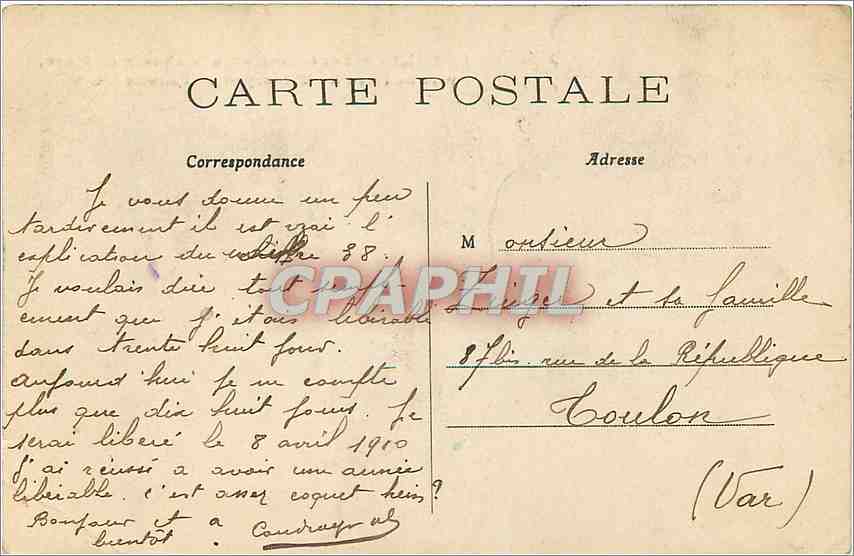 CARTE POSTALE
Correspondance
Je vous donne un peu
tardivement il est vrai l'
explication du chiffre 38.
Je voulais dire tout simple-
ement que j'étais libérable
dans trente huit jour.
aujourd'hui je ne compte
plus que dix huit jours. Je
serai liberé le 8 avril 1910
J'ai réussi a avoir une année
libérable. c'est assez coquet hein?
Bonjour et a
bientôt.
Adresse
M onsieur
et sa famille
87bis rue de la République
Toulon
(Var)
CPAPHIL